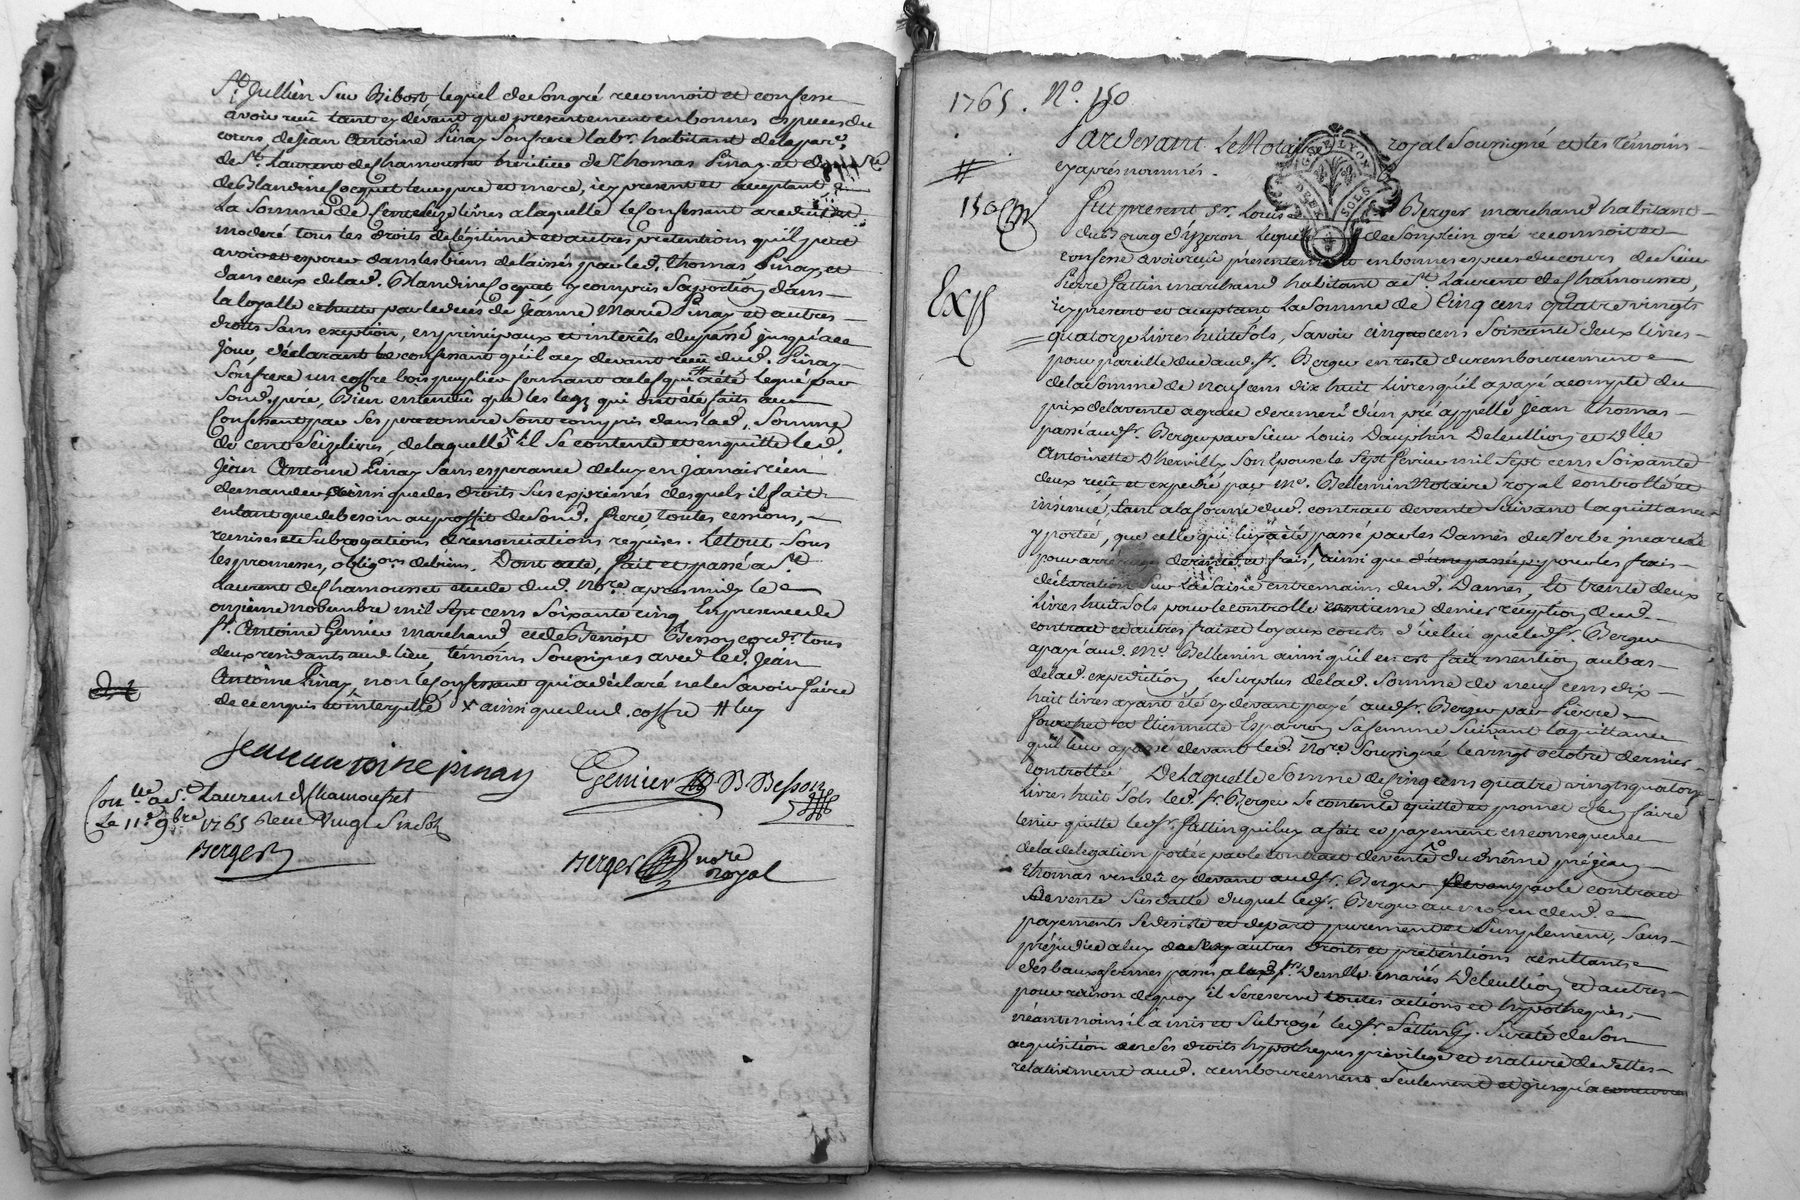 St. Jullien Sur Bibost, lequel de son gré reconnoit et confesse
avoir reçu tant cy devant que presentement en bonnes especes du
cours, de Jean Antoine Pinay son frere labr. habitant de la parr.
de St. Laurent de Chamousset heritier de Thomas Pinay et
de Blandine Cocquet leurs pere et mere, icy present et acceptant,
la Somme de Cent seize livres a laquelle le Confessant a reduit et
moderé tous les droits de légitime et autres pretentions qu'il peut
avoir et esperer dans les biens delaissés par led. Thomas Pinay, et
dans ceux de lad. Blandine Cocquet y compris sa portion dans
la loyalle echutte par le deces de Jeanne Marie Pinay et autres
droits sans exeption, en principaux et interêts du passé jusqu'a ce
jour, déclarant le confessant qu'il a cy devant reçu dud. Pinay
Son frere un coffre bois peuplier fermant a clef qui # a été legué par
Sond. pere, Bien entendu que les legs qui ont été faits au
Confessant par ses pere et mere sont compris dans lad. Somme
de cent Seize livres, de laquelle x il se contente et en quitte led.
Jean Antoine Pinay sans esperance de luy en jamais rien
demander ainsi que des droits sus exprimés desquels il fait
entant que de besoin au proffit de sond. frere, toutes cessions,
remises et subrogations et renonciations requises. Le tout Sous
les promesses, obligons. de biens. Dont acte, fait et passé a St.
Laurent de Chamousset etude dud. Nore. apres midy le
onzieme novembre mil sept cens soixante cinq En presence de
Sr. Antoine Gemier marchand et de Benoist Besson cordr. tous
deux residants aud. lieu, temoins Soussignés avec led. Jean
Antoine Pinay non le Confessant qui a déclaré ne le sçavoir faire
de ce enquis et interpellé x ainsi que dud. coffre # luy
jean antoine pinay Gemier B Besson
Con.lle a St. Laurent de Chamousset
Le 11e. 9bre 1765 Reçu Vingt Six Sols
Berger
Berger nore royal
1765. No. 150
Pardevant Le Notaire royal Soussigné et les témoins
cy après nommés.
GNE. LYON
DEUX SOLS
150
Fut present Sr. Louis Berger marchand habitant
du Bourg d'Yzeron lequel de son plein gré reconnoit et
confesse avoir reçu presentement en bonnes especes du cours de Sieur
Pierre Pattin marchand habitant a St. Laurent de Chamousset,
Exp
icy present et acceptant La Somme de Cinq cens quatre vingts
quatorze livres huit sols, Savoir cinq cens soixante deux livres
pour pareille due aud. Sr. Berger en reste du remboursement
de la Somme de neuf cens dix huit livres qu'il a payé a compte du
prix de la vente a grace de remeré d'un pré appellé Jean Thomas
passé aud. Sr. Berger par Sieur Louis Dauphin Deleullion et Dlle
Antoinette D'hervilly son Epouse le Sept fevrier mil Sept cens Soixante
deux reçu et expedié par Me. Bellemin Notaire royal controllé et
insinué, tant a la forme dud. contrat de vente suivant la quittance
y portée, que celle qui luy a été passé par les Dames du Verbe incarné
pour arrerages de rente et frais, ainsi que pour les frais
déclaration sur la saisie entre mains desd. Dames, Et trente deux
Livres huit Sols pour le controlle centieme denier reception dud.
contrat et autres frais et loyaux couts d'icelui que led. Sr. Berger
a payé aud. Me. Bellemin ainsi qu'il en est fait mention au bas
de lad. expedition Le surplus de lad. Somme de neuf cens dix
huit livres ayant été cy devant payé aud. Sr. Berger par Pierre
Fourchet et Etiennette Esparron sa femme Suivant la quittance
qu'il leur a passé devant led. Nore soussigné le vingt octobre dernier
Controllée, De laquelle Somme de Cinq cens quatre vingts quatorze
Livres huit Sols led. Sr. Berger se contente quitte et promet faire
tenir quitte led. Sr. Pattin qui luy a fait ce payement en consequence
de la delegation portée par le contrat de vente du même pré Jean
Thomas vendu cy devant aud. Sr. Berger par le contrat
de vente Susdatté duquel led. Sr. Berger au moyen dud.
payement Se desiste et départ purement et Simplement, Sans
préjudice a luy de ses autres droits et prétentions résultants
des baux a fermes passés a lad. Sr. Demlle. mariés Deleullion et autres
pour raison de quoy il se reserve toutes actions et hypotheques,
néantmoins il a mis et subrogé led. Sr. Pattin pr. Sureté de son
acquisition en ses droits hypotheques privilege et nature de dettes
relativement aud. remboursement Seulement et jusqu'a concurrence